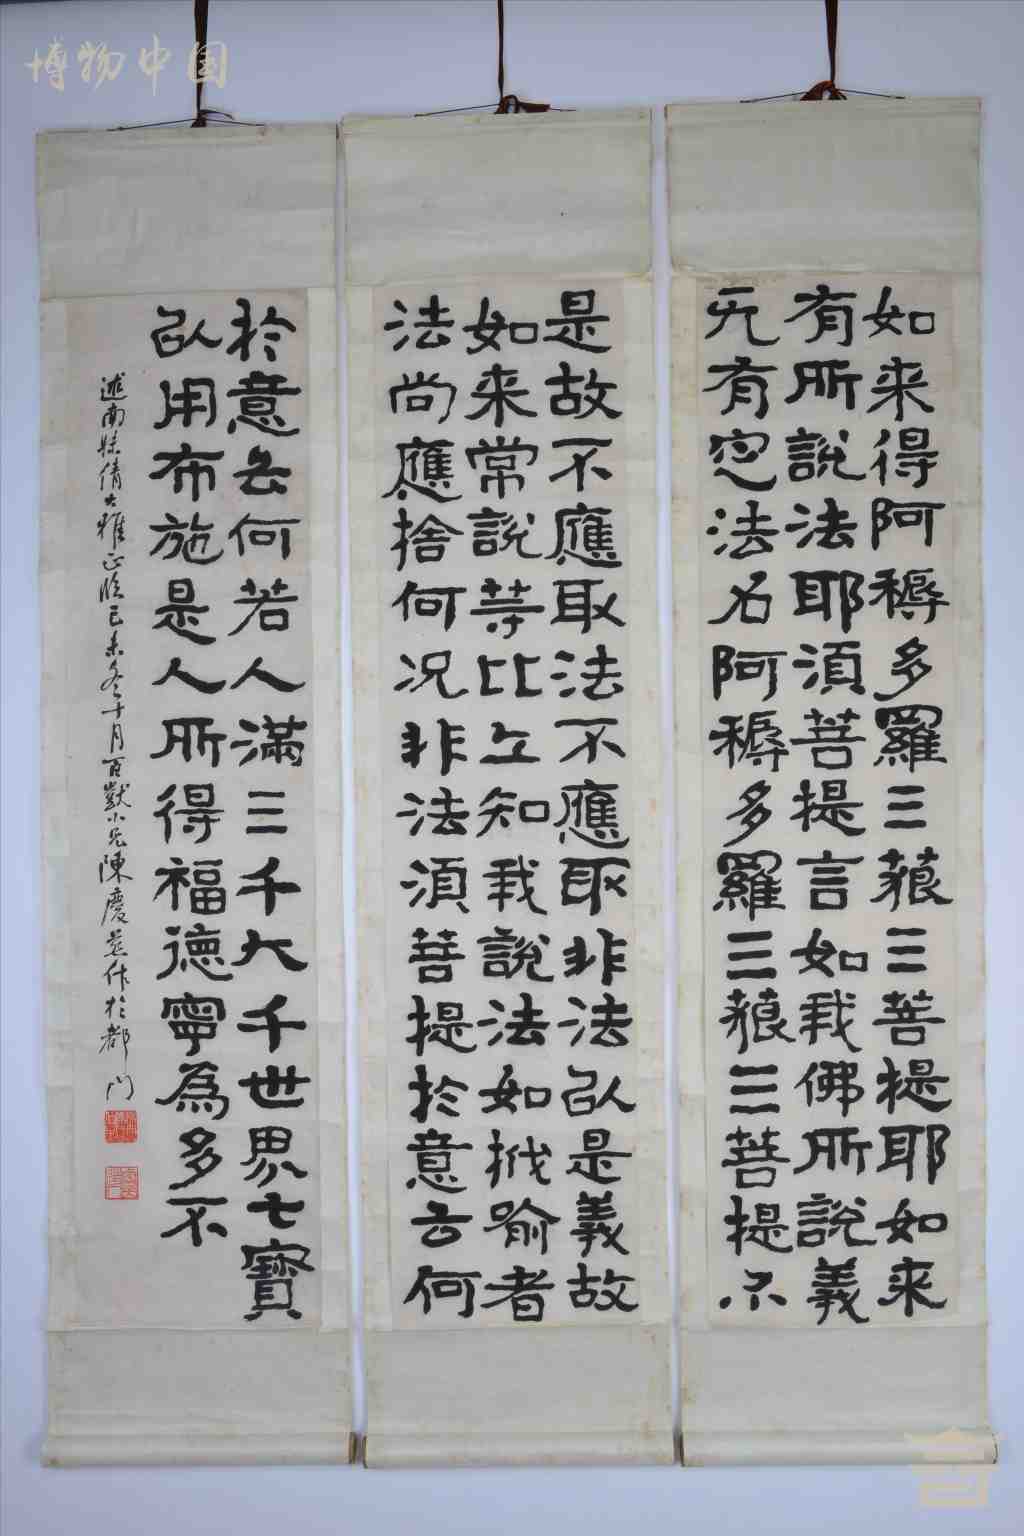 博物中国
如来得阿耨多羅三藐三菩提耶如来
有所說法耶須菩提言如我佛所說義
无有定法名阿耨多羅三藐三菩提亦
是故不應取法不應取非法以是義故
如来常說等比丘知我說法如栰喻者
法尚應捨何况非法須菩提於意云何
於意云何若人滿三千大千世界七寶
以用布施是人所得福德寧為多不
述南妹倩大雅正己未冬十月小兄陳慶作於都門